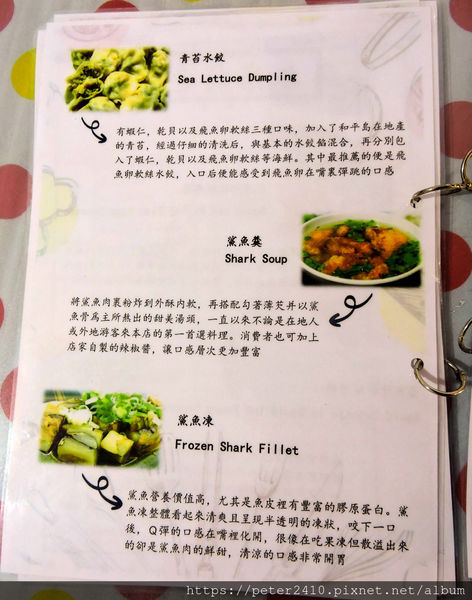 青苔水餃
Sea Lettuce Dumpling
有蝦仁，乾貝以及飛魚卵軟絲三種口味，加入了和平島在地產
的青苔，經過仔細的清洗后，與基本的水餃餡混合，再分別包
入了蝦仁，乾貝以及飛魚卵軟絲等海鮮。其中最推薦的便是飛
魚卵軟絲水餃，入口后便能感受到飛魚卵在嘴裏彈跳的口感
鯊魚羹
Shark Soup
將鯊魚肉裹粉炸到外酥內軟，再搭配勾著薄芡并以鯊
魚骨為主所熬出的甜美湯頭，一直以來不論是在地人
或外地游客來本店的第一首選料理。消費者也可加上
店家自製的辣椒醬，讓口感層次更加豐富
鯊魚凍
Frozen Shark Fillet
鯊魚營養價值高，尤其是魚皮裡有豐富的膠原蛋白。鯊
魚凍整體看起來清爽且呈現半透明的凍狀，咬下一口
後，Q彈的口感在嘴裡化開，很像在吃果凍但散溢出來
的卻是鯊魚肉的鮮甜，清涼的口感非常開胃
https://peter2410.pixnet.net/album